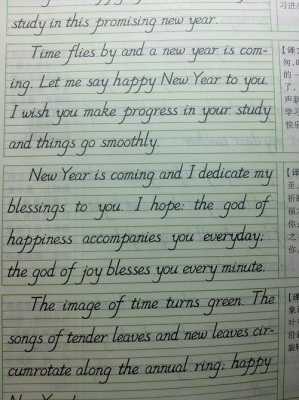 study in this promising new year.
Time flies by and a new year is com-
ing. Let me say happy New Year to you.
I wish you make progress in your study
and things go smoothly.
New Year is coming and I dedicate my
blessings to you. I hope: the god of
happiness accompanies you everyday;
the god of joy blesses you every minute.
The image of time turns green. The
songs of tender leaves and new leaves cir-
cumrotate along the annual ring; happy